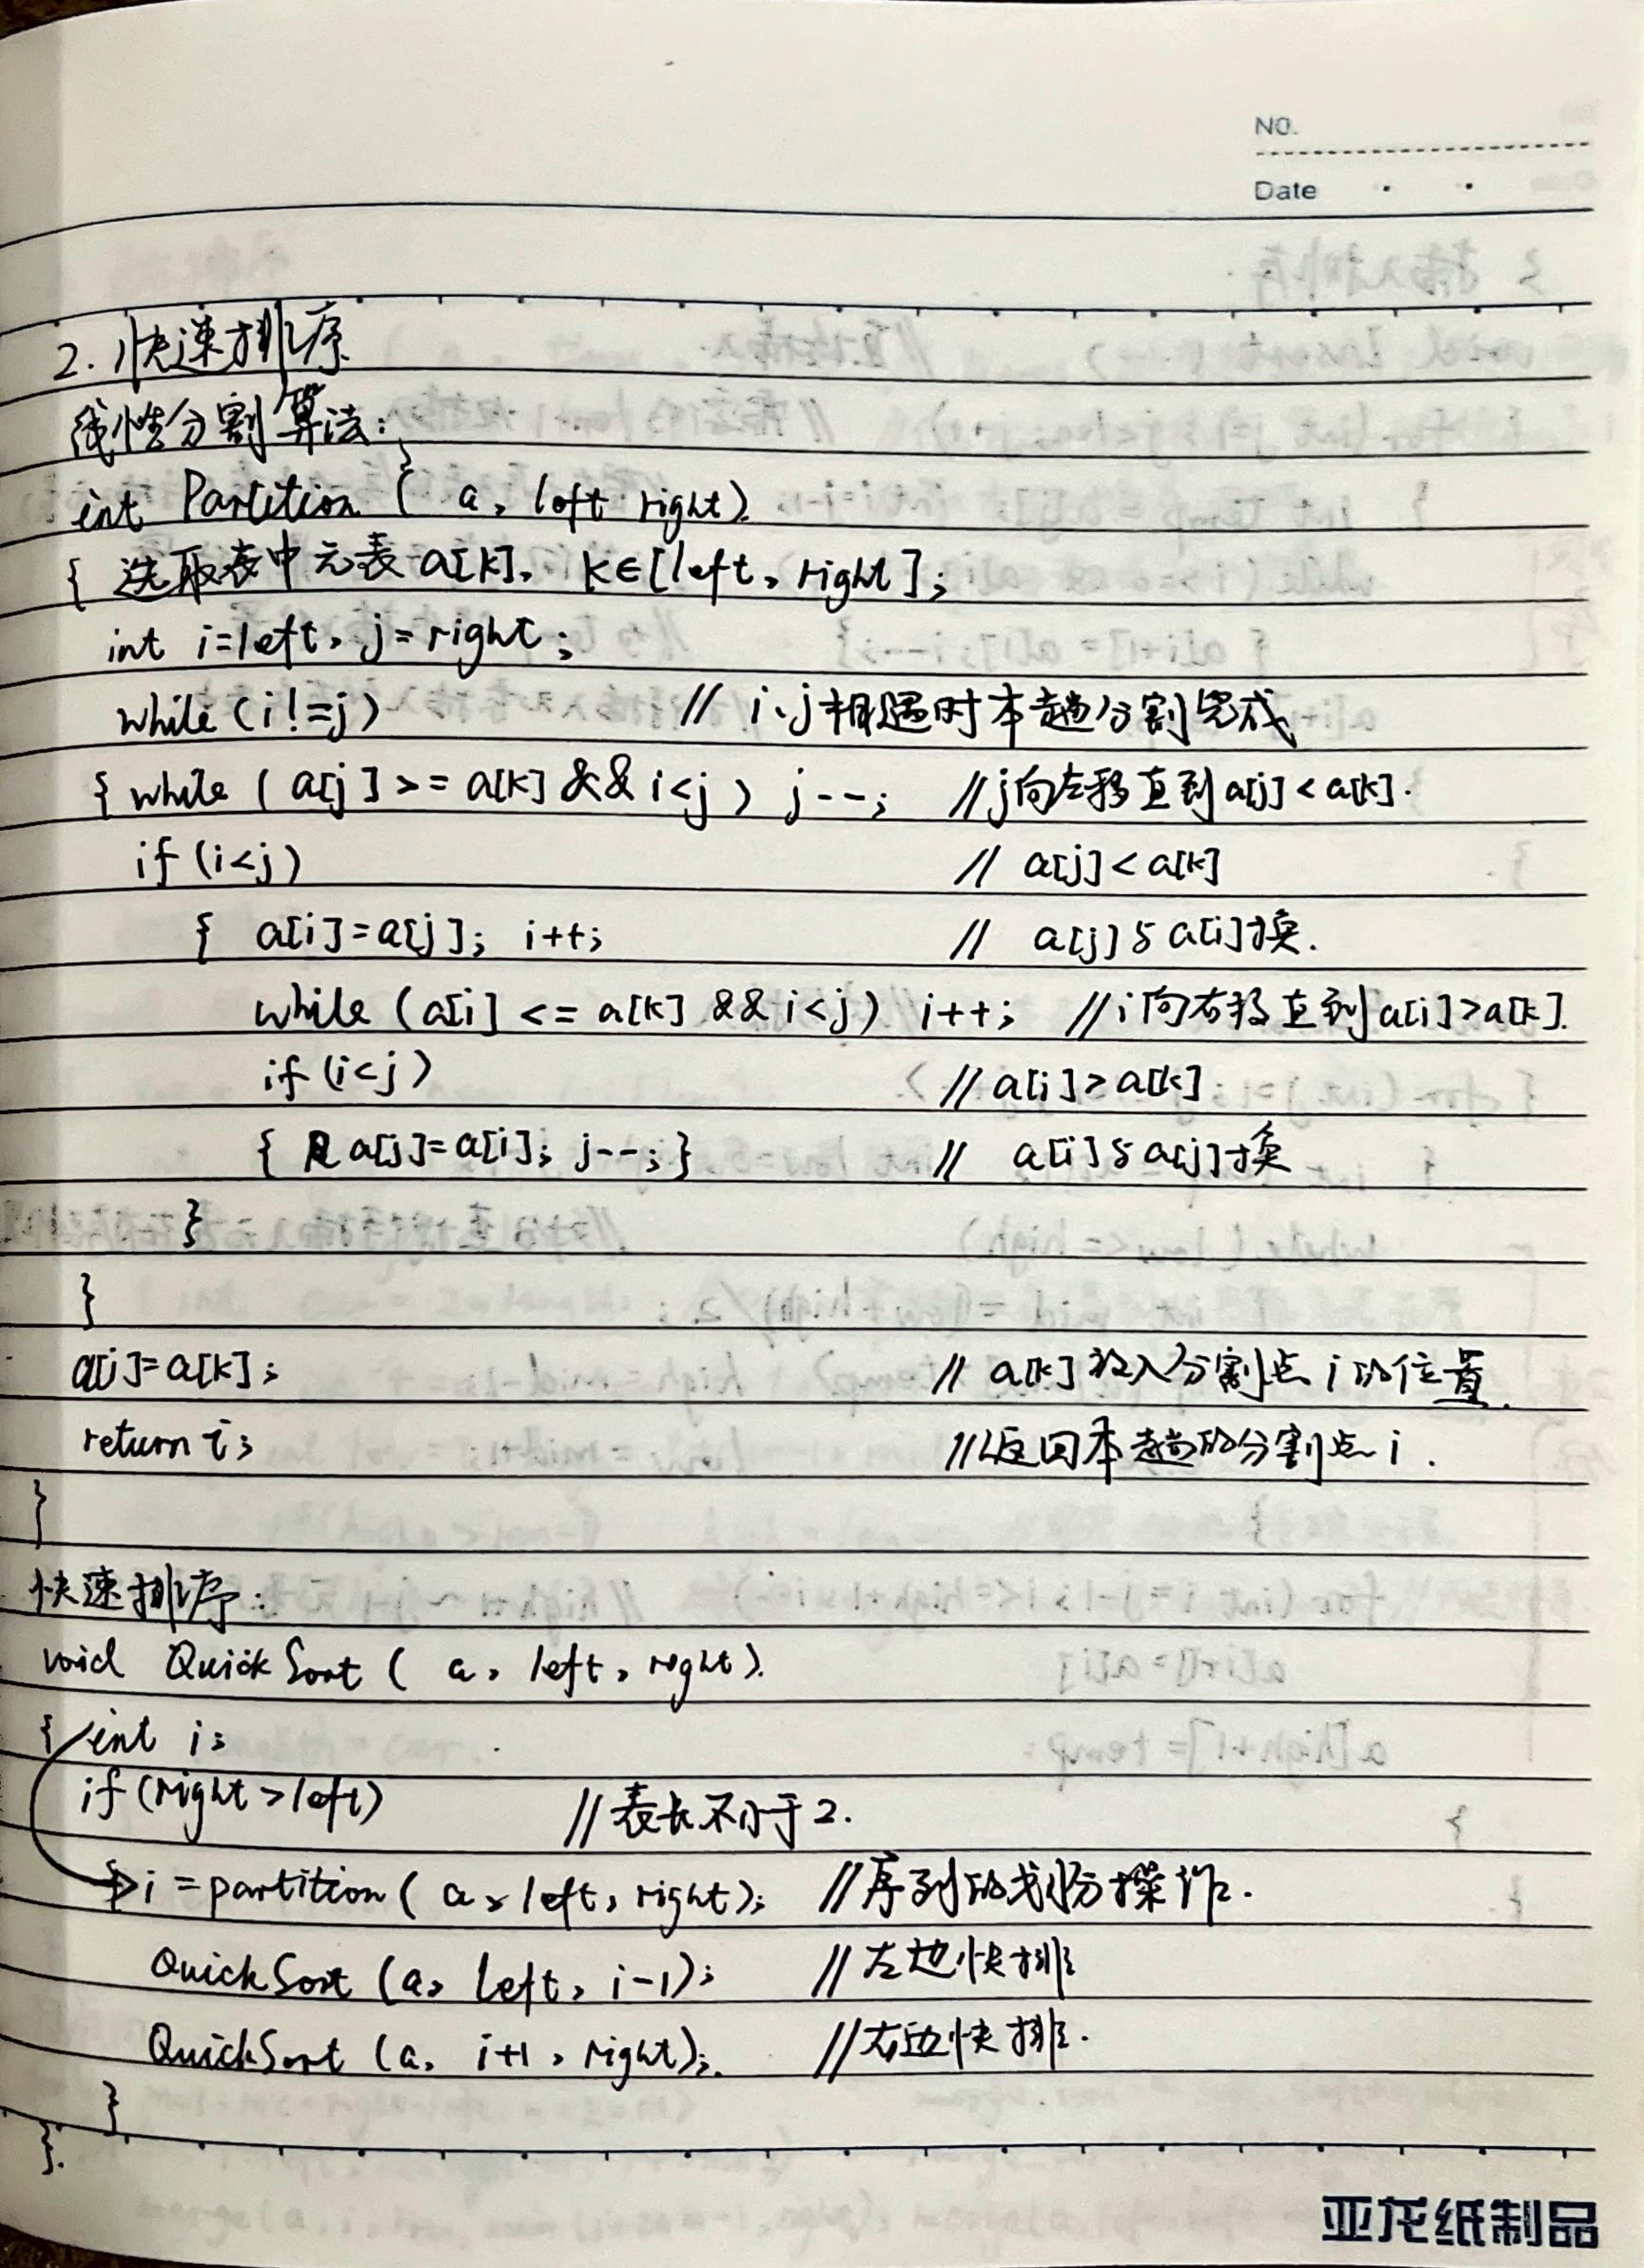 NO.
Date
2. 快速排序
线性分割算法:
int Partition ( a, left right)
{ 选取表中元表 a[k], k∈[left, right];
int i=left, j=right;
while(i!=j) // i、j相遇时本趟分割完成
{ while ( a[j] >= a[k] && i<j ) j--; // j向左移直到a[j]<a[k].
if (i<j) // a[j] < a[k]
{ a[i]=a[j]; i++; // a[j]与a[i]换.
while (a[i] <= a[k] && i<j) i++; // i向右移直到a[i]>a[k].
if (i<j) // a[i]>a[k]
{ a[j]=a[i]; j--; } // a[i]与a[j]换
}
}
a[i]=a[k]; // a[k]放入分割点i的位置.
return i; // 返回本趟的分割点i.
}
快速排序:
void QuickSort ( a, left, right).
{ int i;
if (right>left) // 表长不小于2.
{ i=partition( a, left, right); // 序列的划分操作.
QuickSort (a, left, i-1); // 左边快排
QuickSort (a, i+1, right); // 右边快排.
}
}.
亚龙纸制品